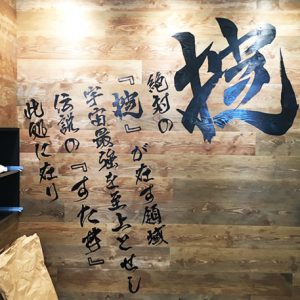 掟
絶対の
『掟』が在す領域
宇宙最強を至上とせし
伝説の『すた丼』
此処に在り